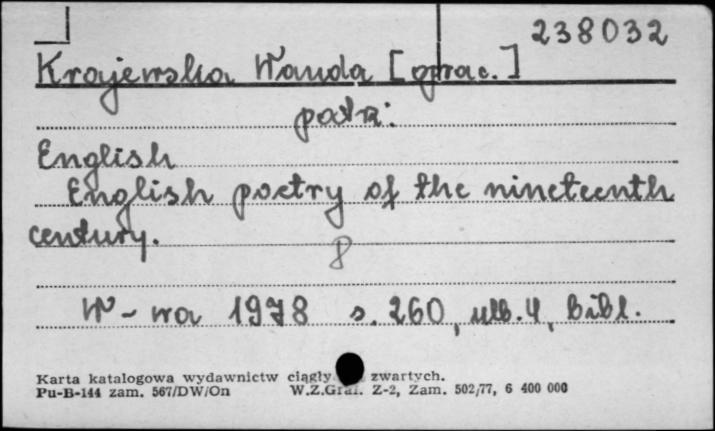 238032
Krajewska Wanda [oprac.]
patrz:
English
English poetry of the nineteenth
century.
8
W-wa 1978 s. 260, ulb. 4, bibl.
Karta katalogowa wydawnictw ciągły zwartych.
Pu-B-144 zam. 567/DW/On W.Z.Graf. Z-2, Zam. 502/77, 6 400 000